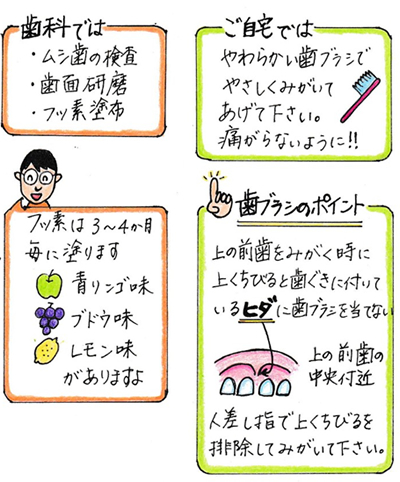 歯科では
・ムシ歯の検査
・歯面研磨
・フッ素塗布
ご自宅では
やわらかい歯ブラシで
やさしくみがいて
あげて下さい。
痛がらないように!!
フッ素は3〜4か月
毎に塗ります
青リンゴ味
ブドウ味
レモン味
がありますよ
歯ブラシのポイント
上の前歯をみがく時に
上くちびると歯ぐきに付いて
いるヒダに歯ブラシを当てない
上の前歯の
中央付近
人差し指で上くちびるを
排除してみがいて下さい。